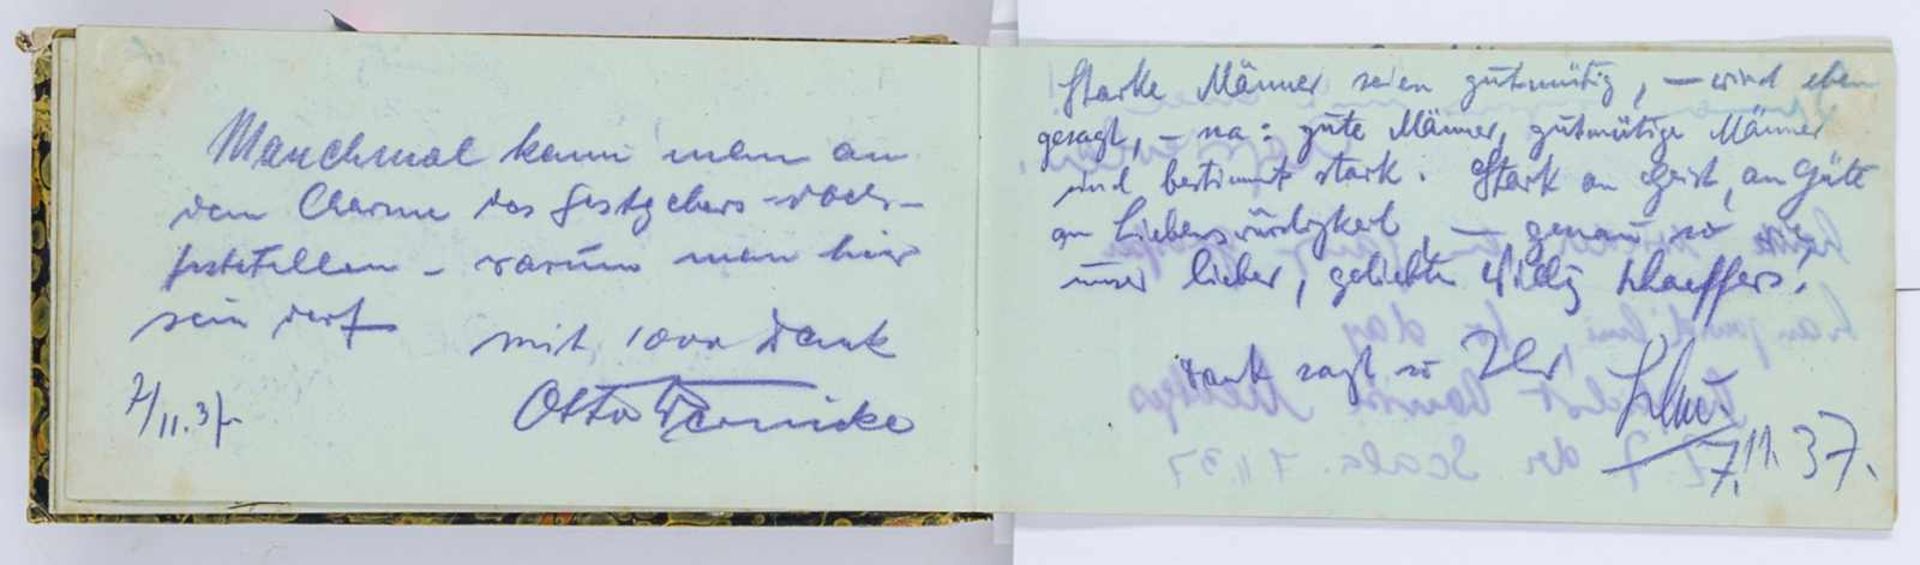 Manchmal kann man an
dem Charme des Gastgebers - doch -
feststellen - warum man hier
sein darf
mit 1000 Dank
7/11.37
Otto Wernicke
Starke Männer seien gutmütig, — wird eben
gesagt, - na: gute Männer, gutmütige Männer
sind bestimmt stark. Stark an Geist, an Güte
an Liebenswürdigkeit, — genau so
unser lieber, geliebter Willy Schaeffers!
Dank sagt so Ihr
7.11.37.